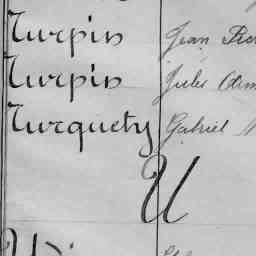 Turpin Jean
Turpin Jules
Turquety Gabriel
U